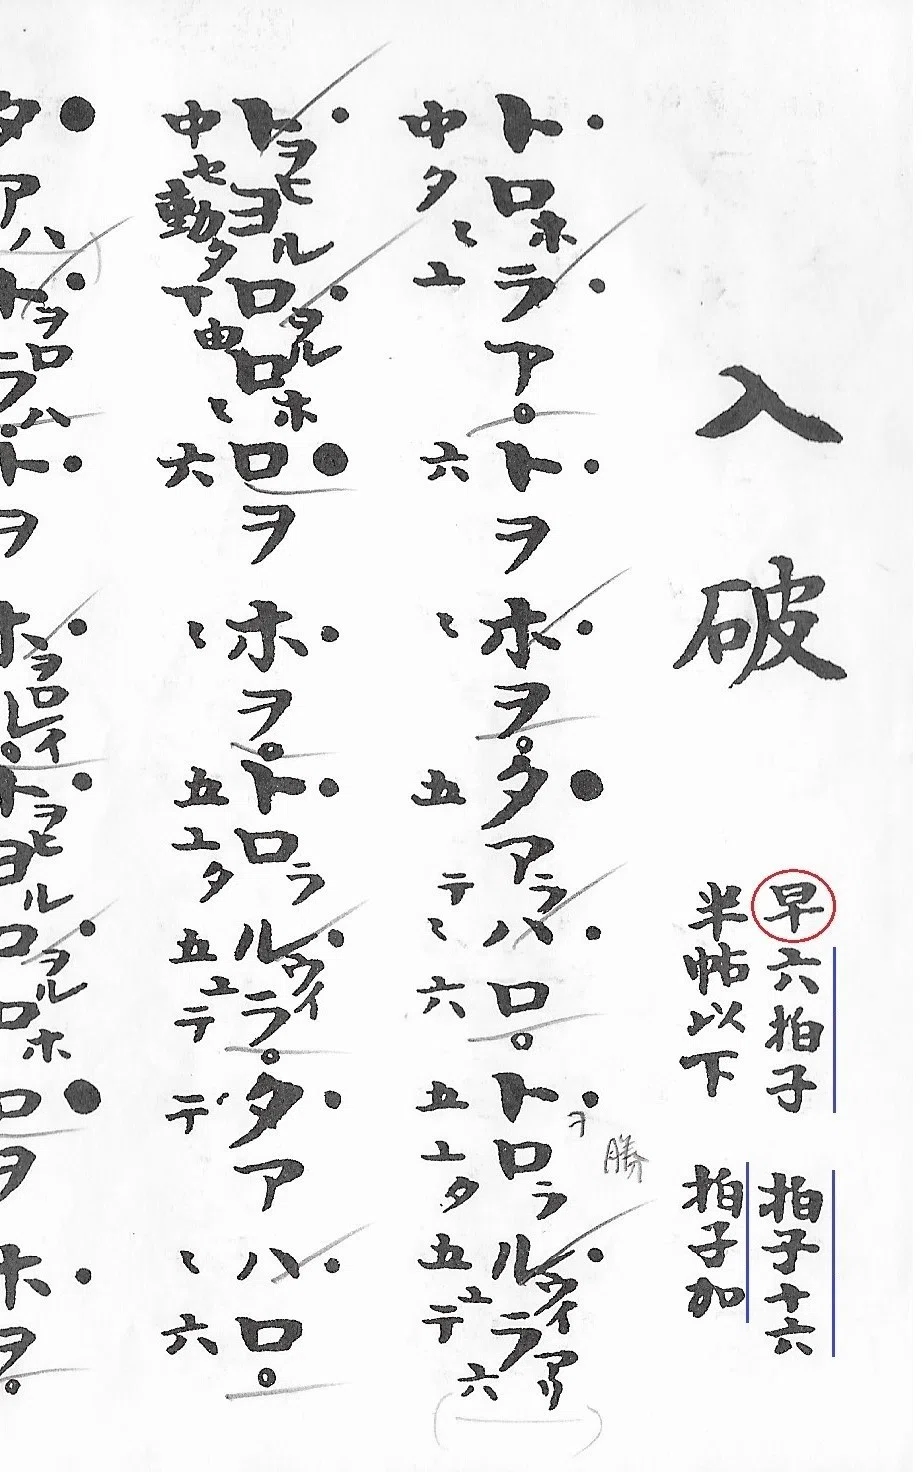 入破
早六拍子 拍子十六
半帖以下 拍子加
トロホラア。トヲホヲ。タアラハロ。トロラルウイラア
ヲ 勝
中タ
六
五
テ
六
五
タ
五
テ
六
トヲヒヨルロヲルロホロヲホヲ。トロラルウイラ。タアハロ。
中セ動タ
由
六
五
タ
五
テ
デ
六
タアハトヲロラハ。トヲホヲロレイ。トヲヒヨルロヲルロホロヲホヲ。